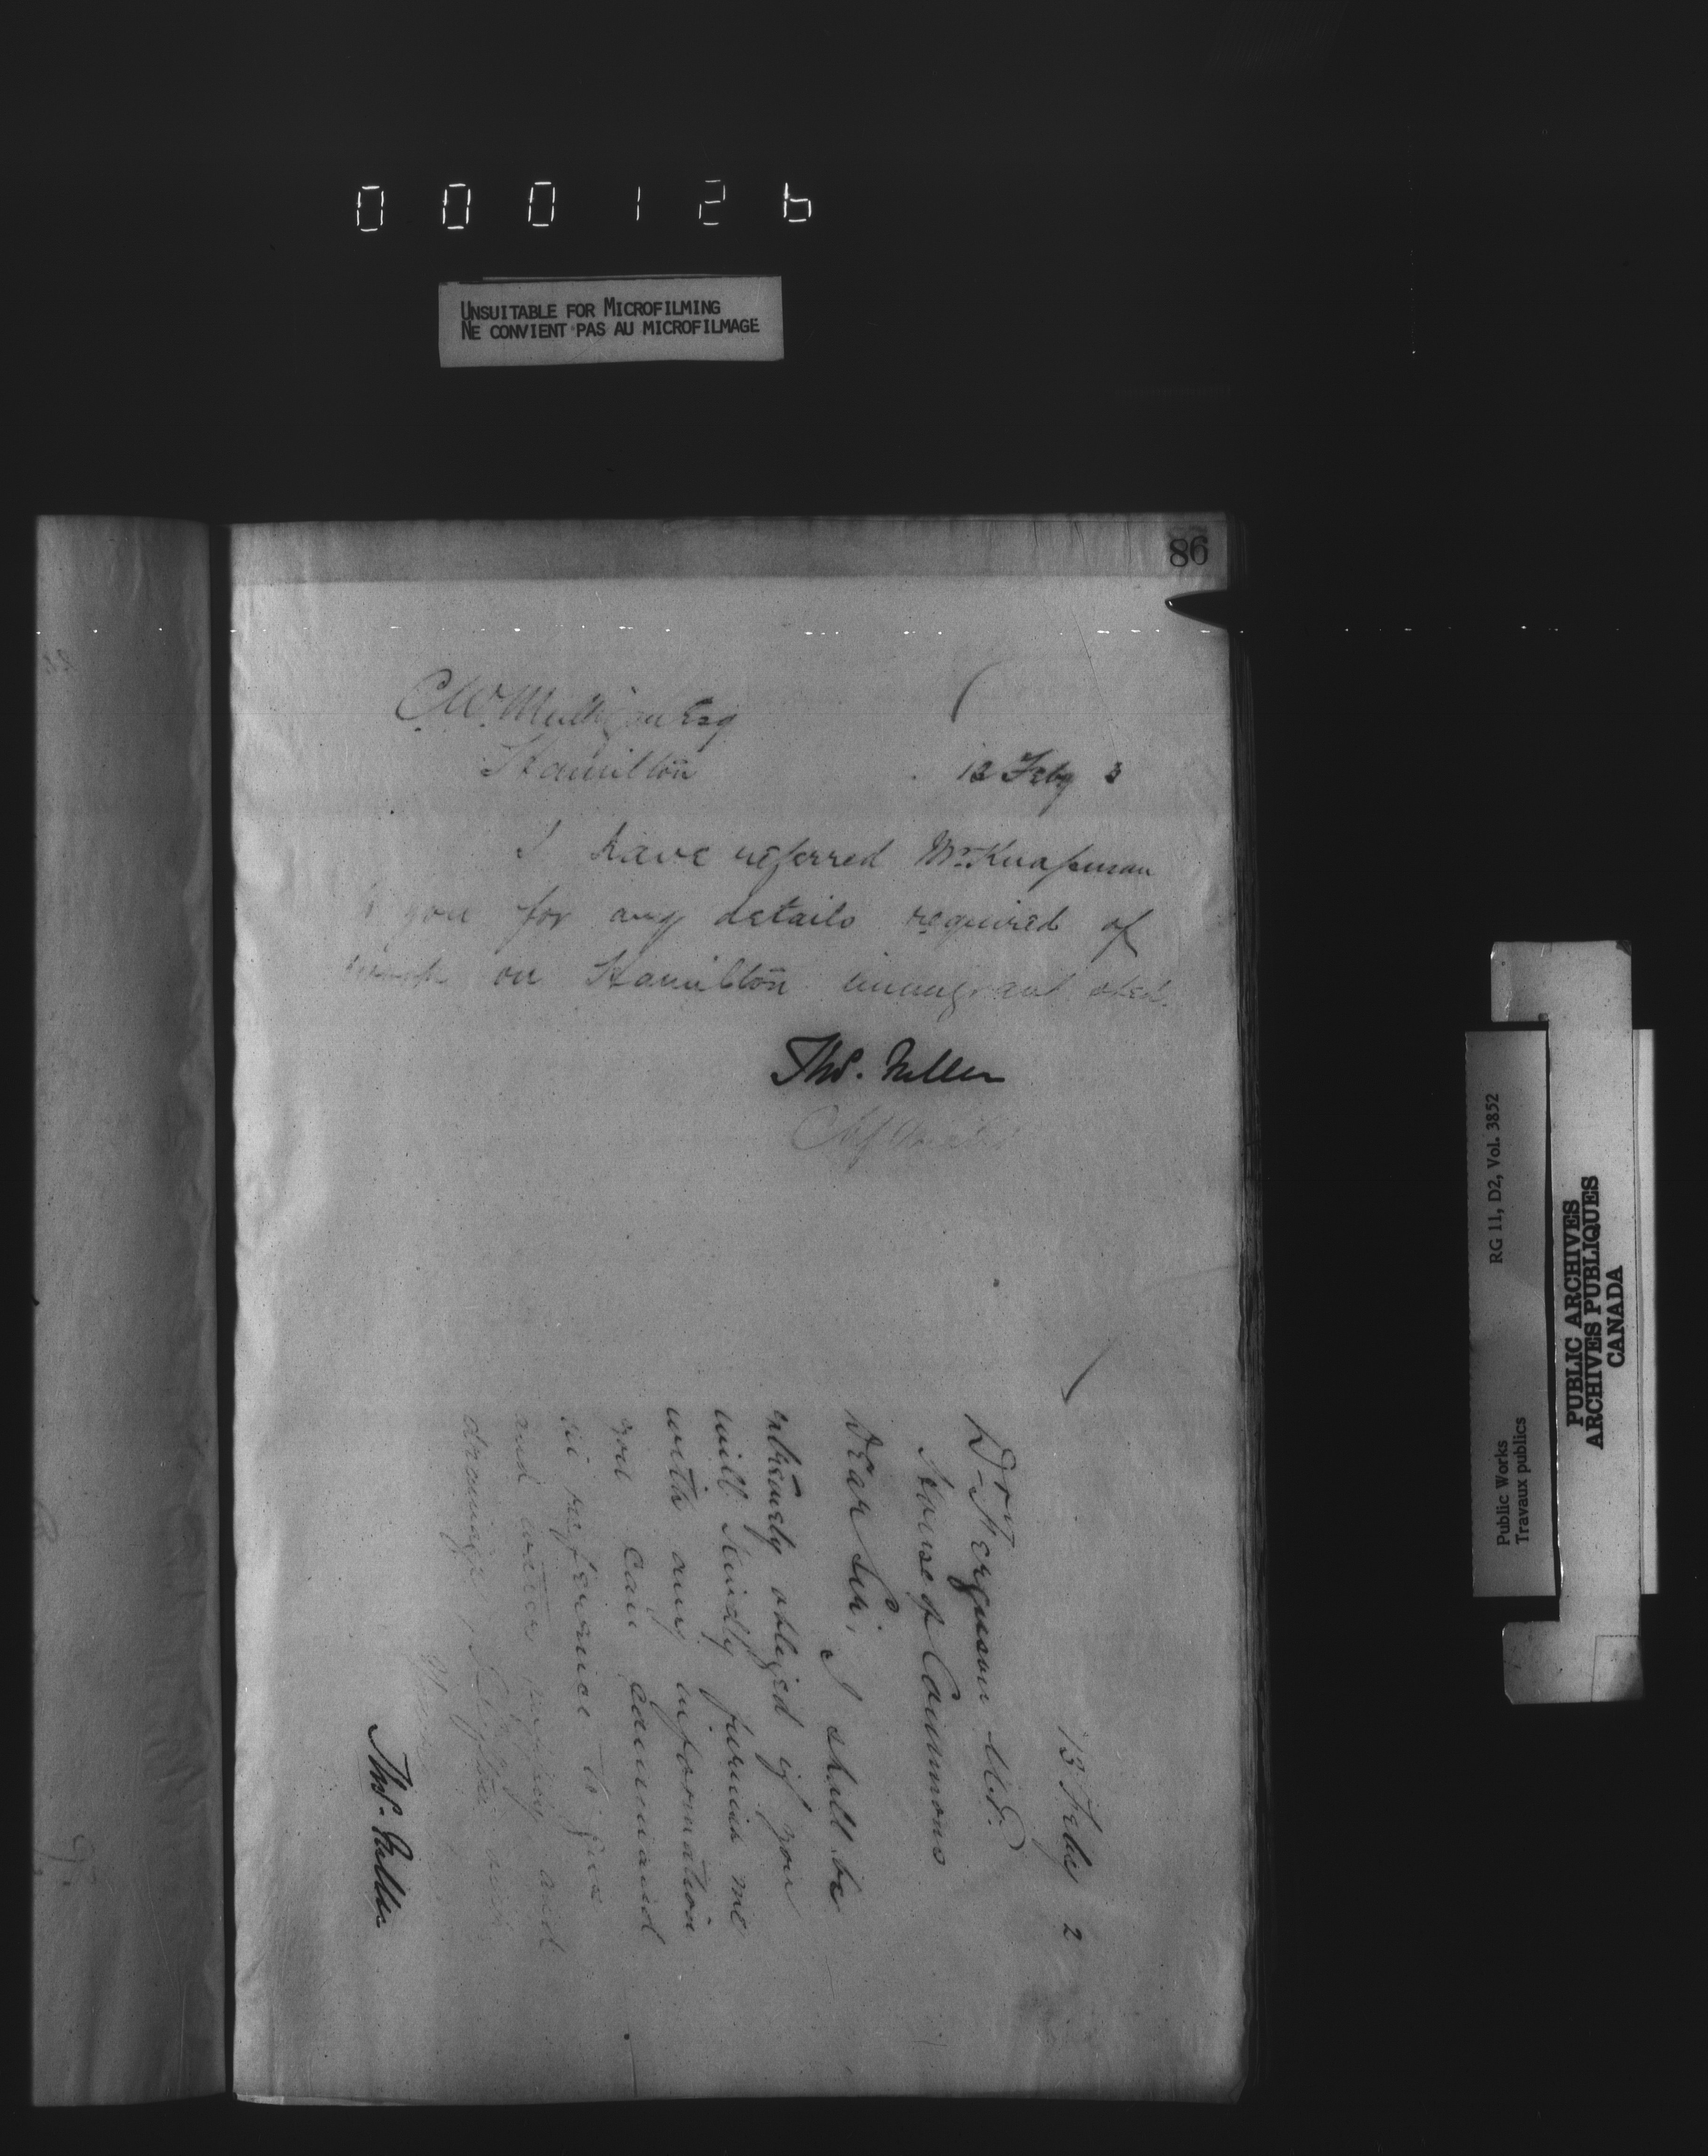 000126
UNSUITABLE FOR MICROFILMING
NE CONVIENT PAS AU MICROFILMAGE
86
C.W. Mulligan Esq
Hamilton
12 Feby 3
I have referred Mr. Knapman
to you for any details required of
work on Hamilton immigrant shed.
Thos. Fuller
Ch Architect
13 Feby 2
Dr. Ferguson M.P.
House of Commons
Dear Sir, I shall be
extremely obliged if you
will kindly furnish me
with any information
you can command
in reference to
and water supply and
drainage,
Thos. Fuller
RG 11, D2, Vol. 3852
Public Works
Travaux publics
PUBLIC ARCHIVES
ARCHIVES PUBLIQUES
CANADA